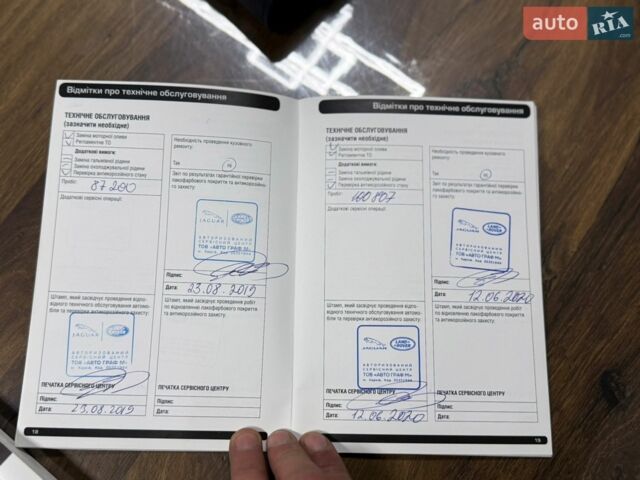 auto RIA .com
Відмітки про технічне обслуговування
ТЕХНІЧНЕ ОБСЛУГОВУВАННЯ
(зазначити необхідне)
Заміна моторної оливи
Регламентне ТО
Додаткові вимоги:
Заміна гальмівної рідини
Заміна охолоджувальної рідини
Перевірка антикорозійного стану
Пробіг: 87 200
Додаткові сервісні операції:
Штамп, який засвідчує проведення відпо-
відного технічного обслуговування автомо-
біля та перевірки антикорозійного захисту:
JAGUAR
АВТОРИЗОВАНИЙ
СЕРВІСНИЙ ЦЕНТР
ТОВ «АВТО ГРАФ М»
ПЕЧАТКА СЕРВІСНОГО ЦЕНТРУ
Підпис:
Дата: 23.08.2019
18
Необхідність проведення кузовного
ремонту:
Так
Ні
Звіт по результатах гарантійної перевірки
лакофарбового покриття та антикорозійно-
го захисту:
JAGUAR
АВТОРИЗОВАНИЙ
СЕРВІСНИЙ ЦЕНТР
ТОВ «АВТО ГРАФ М»
Підпис:
Дата: 23.08.2019
Штамп, який засвідчує проведення робіт
по відновленню лакофарбового покриття
та антикорозійного захисту:
Підпис:
Дата:
Відмітки про технічне обслуговування
ТЕХНІЧНЕ ОБСЛУГОВУВАННЯ
(зазначити необхідне)
Заміна моторної оливи
Регламентне ТО
Додаткові вимоги:
Заміна гальмівної рідини
Заміна охолоджувальної рідини
Перевірка антикорозійного стану
Пробіг: 100 807
Додаткові сервісні операції:
Штамп, який засвідчує проведення відпо-
відного технічного обслуговування автомо-
біля та перевірки антикорозійного захисту:
JAGUAR LAND ROVER
АВТОРИЗОВАНИЙ
СЕРВІСНИЙ ЦЕНТР
ТОВ «АВТО ГРАФ М»
ПЕЧАТКА СЕРВІСНОГО ЦЕНТРУ
Підпис:
Дата: 12.06.2020
Необхідність проведення кузовного
ремонту:
Так
Ні
Звіт по результатах гарантійної перевірки
лакофарбового покриття та антикорозійно-
го захисту:
JAGUAR LAND ROVER
АВТОРИЗОВАНИЙ
СЕРВІСНИЙ ЦЕНТР
ТОВ «АВТО ГРАФ М»
Підпис:
Дата: 12.06.2020
Штамп, який засвідчує проведення робіт
по відновленню лакофарбового покриття
та антикорозійного захисту:
Підпис:
Дата:
19